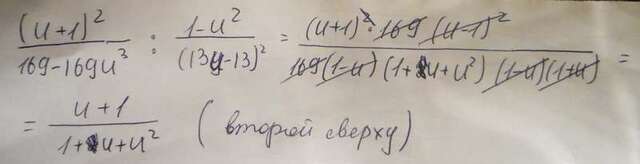 (u+1)² / (169-169u³) : (1-u²) / (13u-13)² = ((u+1)² · 169 (u-1)²) / (169(1-u)(1+u+u²)(1-u)(1+u)) =
= (u+1) / (1+u+u²) (второй сверху)